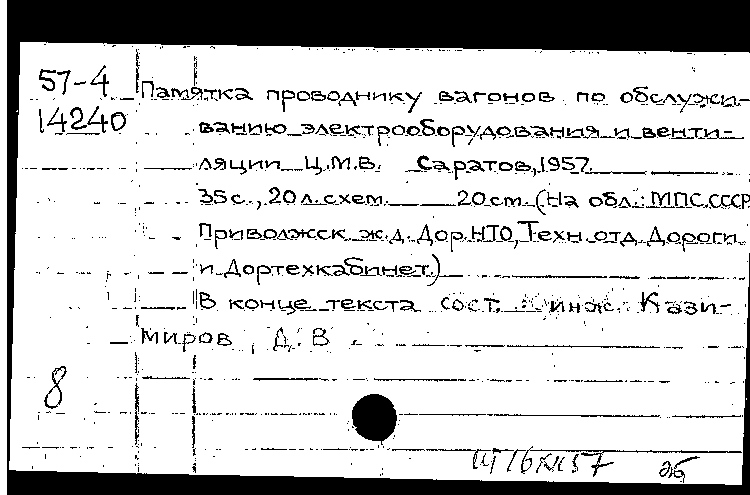 57-4
14240
Памятка проводнику вагонов по обслужи-
ванию электрооборудования и венти-
ляции Ц.М.В. Саратов, 1957.
35с., 20л. схем. 20см. (На обл.: МПС.СССР
Приволжск. ж.д. Дор.НТО, Техн. отд. Дороги
и Дортехкабинет.)
В конце текста сост. инж. Кази-
миров, Д. В.
8